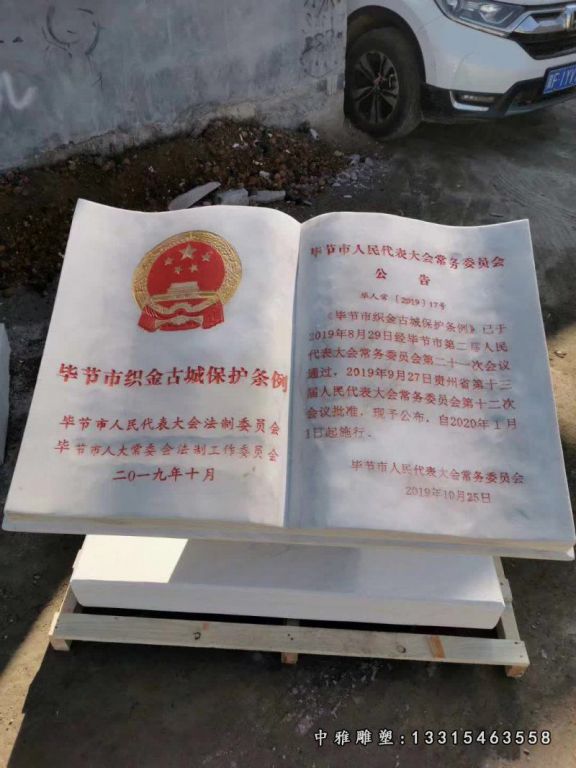 毕节市织金古城保护条例
毕节市人民代表大会法制委员会
毕节市人大常委会法制工作委员会
二〇一九年十月
毕节市人民代表大会常务委员会
公告
毕人常〔2019〕17号
《毕节市织金古城保护条例》已于
2019年8月29日经毕节市第二届人民
代表大会常务委员会第二十一次会议
通过，2019年9月27日贵州省第十三
届人民代表大会常务委员会第十二次
会议批准，现予公布，自2020年1月
1日起施行。
毕节市人民代表大会常务委员会
2019年10月25日
中雅雕塑:13315463558